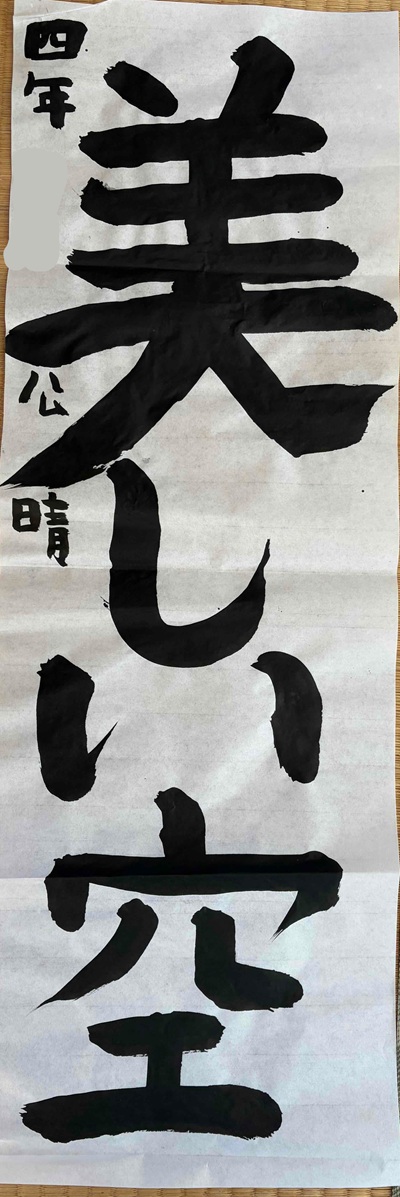 美しい空
四年
公晴